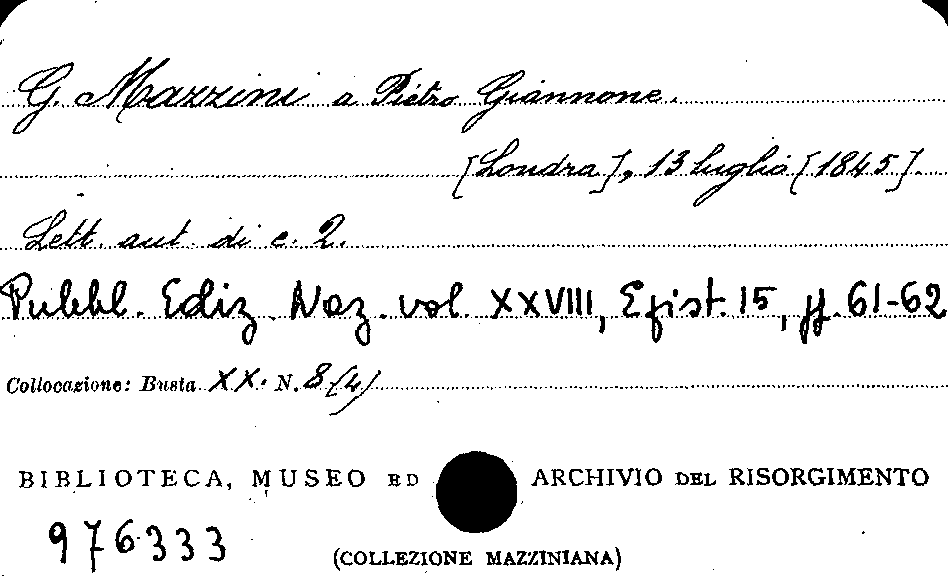 G. Mazzini a Pietro Giannone.
[Londra], 13 luglio [1845].
Lett. aut. di c. 2.
Pubbl. Ediz. Naz. vol. XXVIII, Epist. 15, pp. 61-62
Collocazione: Busta XX. N. 8 (4)
BIBLIOTECA, MUSEO ED ARCHIVIO DEL RISORGIMENTO
976333
(COLLEZIONE MAZZINIANA)